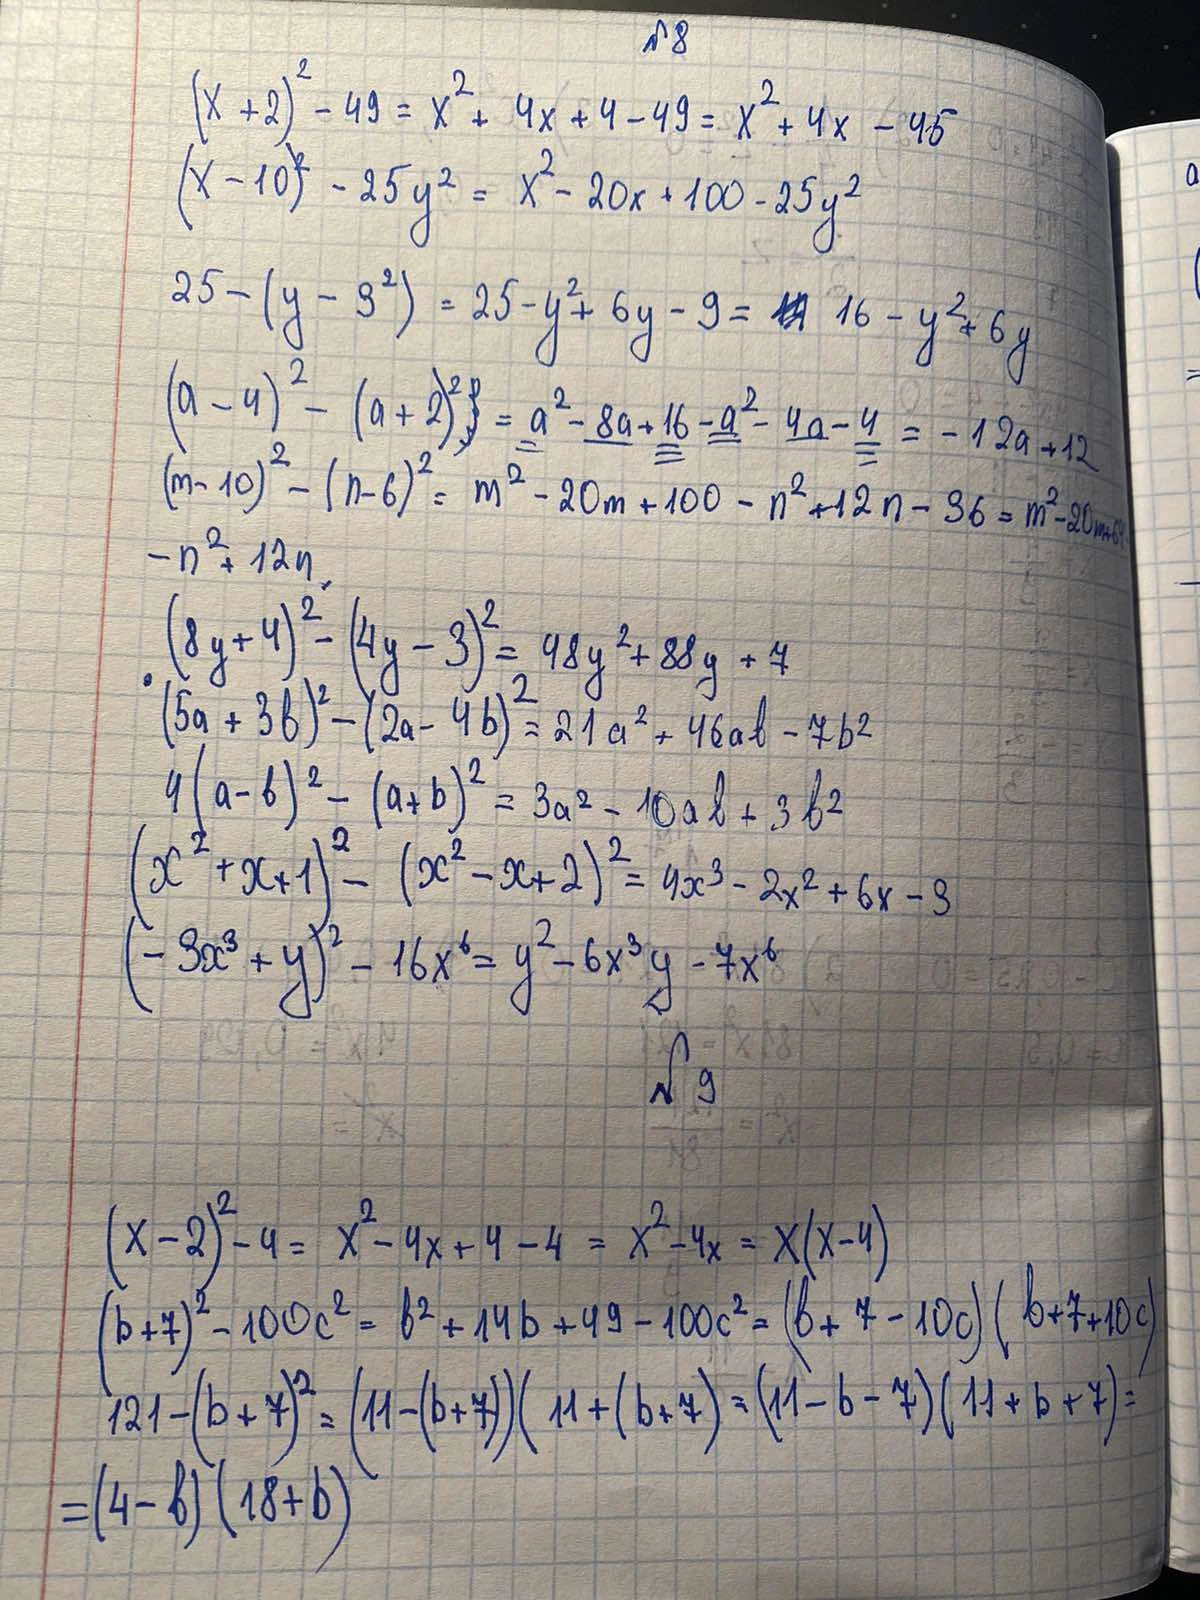 №8
(x+2)² - 49 = x² + 4x + 4 - 49 = x² + 4x - 45
(x - 10)² - 25y² = x² - 20x + 100 - 25y²
25 - (y - 3²) = 25 - y² + 6y - 9 = 16 - y² + 6y
(a - 4)² - (a + 2)² = a² - 8a + 16 - a² - 4a - 4 = -12a + 12
(m - 10)² - (n - 6)² = m² - 20m + 100 - n² + 12n - 36 = m² - 20m + 64
- n² + 12n
(8y + 4)² - (4y - 3)² = 48y² + 88y + 7
(5a + 3b)² - (2a - 4b)² = 21a² + 46ab - 7b²
4(a - b)² - (a + b)² = 3a² - 10ab + 3b²
(x² + x + 1)² - (x² - x + 2)² = 4x³ - 2x² + 6x - 3
(-3x³ + y)² - 16x⁶ = y² - 6x³y - 7x⁶
№9
(x - 2)² - 4 = x² - 4x + 4 - 4 = x² - 4x = x(x - 4)
(b + 7)² - 100c² = b² + 14b + 49 - 100c² = (b + 7 - 10c)(b + 7 + 10c)
121 - (b + 7)² = (11 - (b + 7))(11 + (b + 7) = (11 - b - 7)(11 + b + 7) =
= (4 - b)(18 + b)